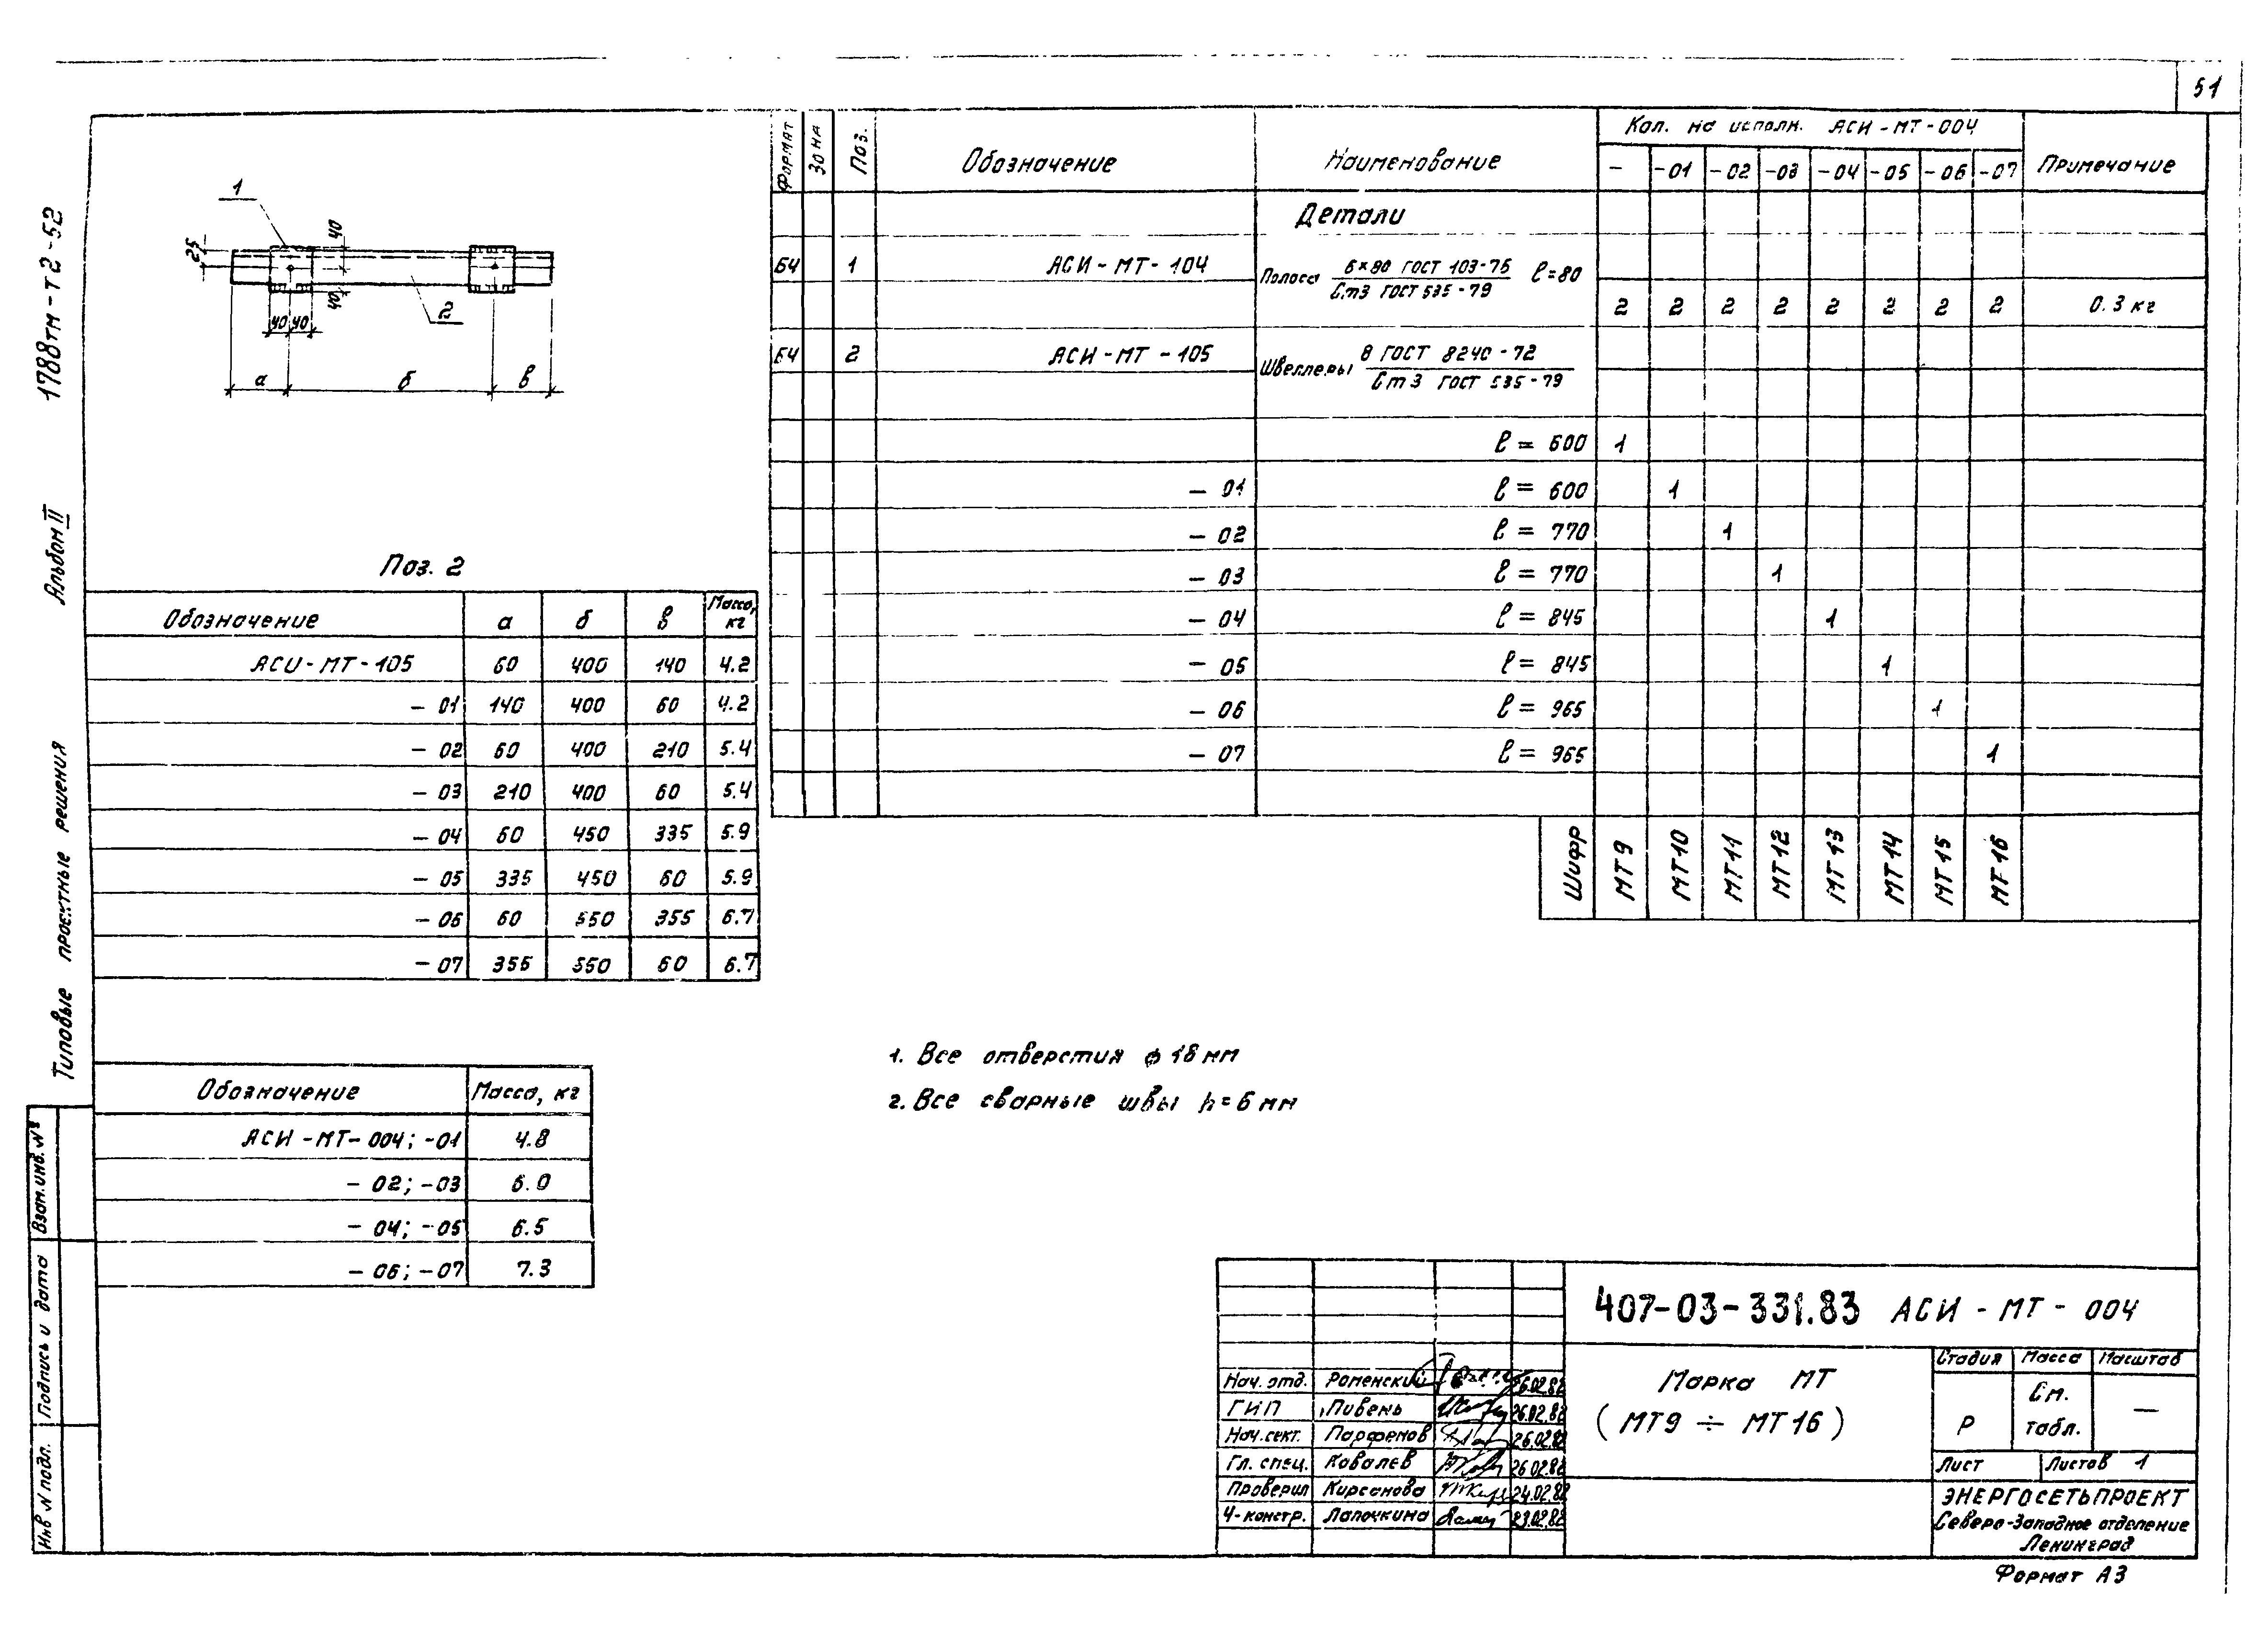 51
1788тм-т2-52
Альбом II
Типовые проектные решения
Взам.инб.№
Подпись и дата
Инв N подл.
1
25
40
40
40 40
2
а б в
Поз. 2
Обозначение а б в Масса, кг
АСИ-МТ-105 60 400 140 4.2
- 01 140 400 60 4.2
- 02 60 400 210 5.4
- 03 210 400 60 5.4
- 04 60 450 335 5.9
- 05 335 450 60 5.9
- 06 60 550 355 6.7
- 07 355 550 60 6.7
Обозначение Масса, кг
АСИ-МТ-004; -01 4.8
- 02; -03 6.0
- 04; -05 6.5
- 06; -07 7.3
Формат Зона Поз. Обозначение Наименование Кол. на исполн. АСИ-МТ-004 Примечание
- -01 -02 -03 -04 -05 -06 -07
Детали
Б4 1 АСИ-МТ-104 Полоса 6×80 ГОСТ 103-76 ℓ=80
Ст3 ГОСТ 535-79
2 2 2 2 2 2 2 2 0.3 кг
Б4 2 АСИ-МТ-105 Швеллеры 8 ГОСТ 8240-72
Ст3 ГОСТ 535-79
ℓ = 600 1
- 01 ℓ = 600 1
- 02 ℓ = 770 1
- 03 ℓ = 770 1
- 04 ℓ = 845 1
- 05 ℓ = 845 1
- 06 ℓ = 965 1
- 07 ℓ = 965 1
Шифр МТ9 МТ10 МТ11 МТ12 МТ13 МТ14 МТ15 МТ16
1. Все отверстия ϕ 18 мм
2. Все сварные швы h=6 мм
407-03-331.83 АСИ-МТ-004
Нач. отд. Роменский 26.02.82
ГИП Пивень 26.02.82
Нач.сект. Парфенов 26.02.82
Гл. спец. Ковалев 26.02.82
Проверил Кирсанова 24.02.82
Ч-констр. Лапочкина 23.02.82
Марка МТ
(МТ9 ÷ МТ16)
Стадия Масса Масштаб
Р См. табл. —
Лист Листов 1
ЭНЕРГОСЕТЬПРОЕКТ
Северо-Западное отделение
Ленинград
Формат А3